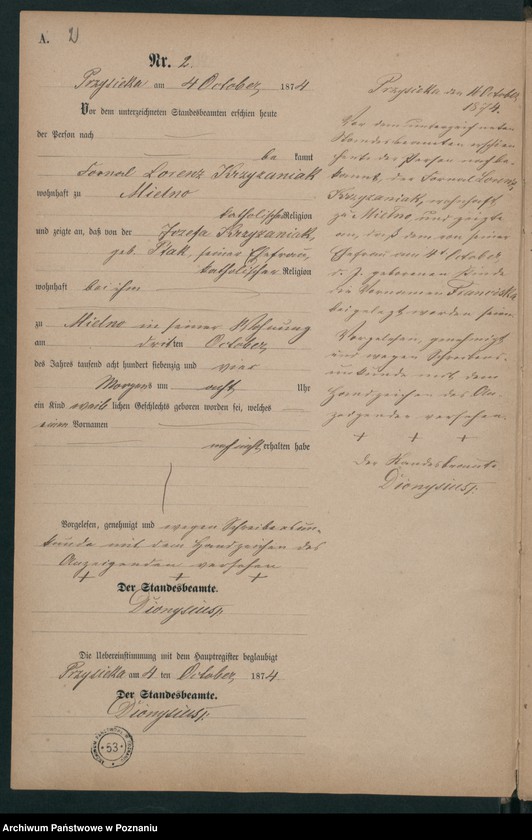 A. 2
Nr. 2.
Przysieka am 4 October 1874
Vor dem unterzeichneten Standesbeamten erschien heute
der Person nach
be kannt
Fornal Lorenz Krzyzaniak
wohnhaft zu Mielno
katholischer Religion
und zeigte an, daß von der Josefa Krzyzaniak,
geb. Ptak, seiner Ehefrau,
katholischer Religion
wohnhaft bei ihm
zu Mielno in seiner Wohnung
am dritten October,
des Jahres tausend acht hundert siebenzig und vier
Morgens um acht Uhr
ein Kind weib lichen Geschlechts geboren worden sei, welches
einen Vornamen
noch nicht erhalten habe
Vorgelesen, genehmigt und wegen Schreibensun-
kunde mit dem Handzeichen des
Anzeigenden versehen
+ + +
Der Standesbeamte.
Dionysius
Die Uebereinstimmung mit dem Hauptregister beglaubigt
Przysieka am 4 ten October, 1874
Der Standesbeamte.
Dionysius
53
Przysieka den October
1874.
Vor dem unterzeichneten
Standesbeamten erschien
heute der Person nach be-
kannt, der Fornal Lorenz
Krzyzaniak, wohnhaft
zu Mielno und zeigte
an, daß dem von seiner
Ehefrau am October
d. J. geborenen Kinde
die Vornamen Franciska
beigelegt worden seien.
Vorgelesen, genehmigt
und wegen Schreibens-
unkunde mit dem
Handzeichen des An-
zeigenden versehen.
+ + +
Der Standesbeamte
Dionysius
Archiwum Państwowe w Poznaniu